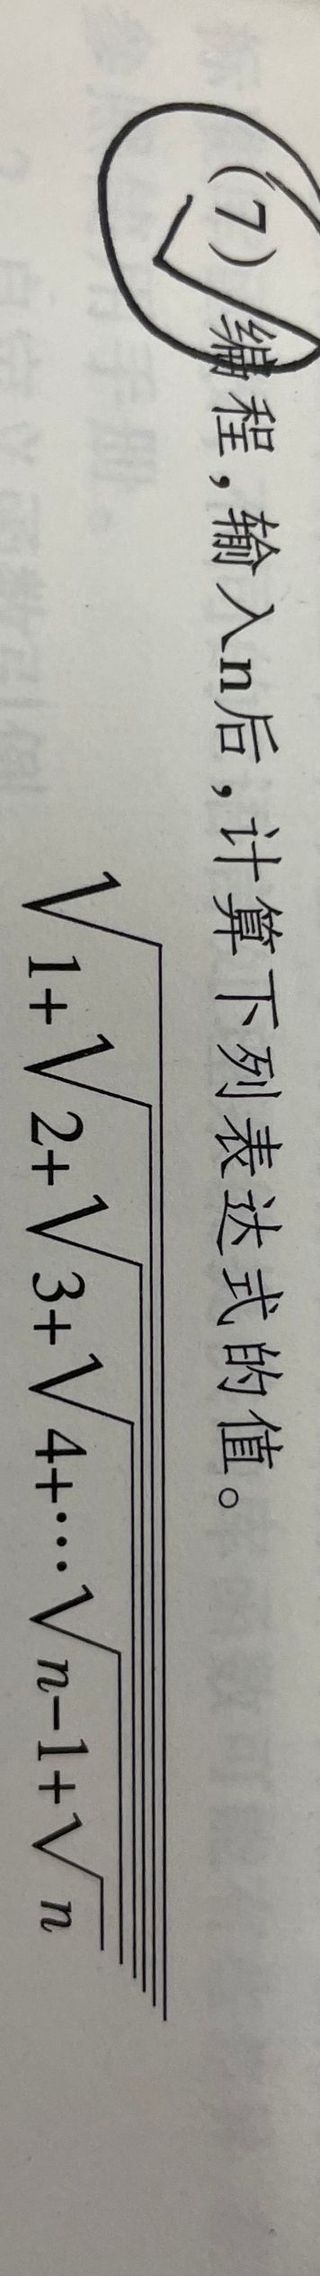 (7) 编程,输入n后,计算下列表达式的值。
√1+√2+√3+√4+⋯√n−1+√n